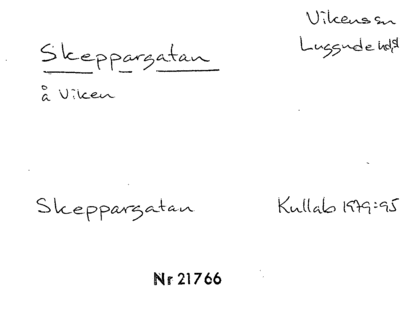 Vikens sn
Skeppargatan
Luggude hd
å Viken
Skeppargatan
Kullab 1979:95
Nr 21766